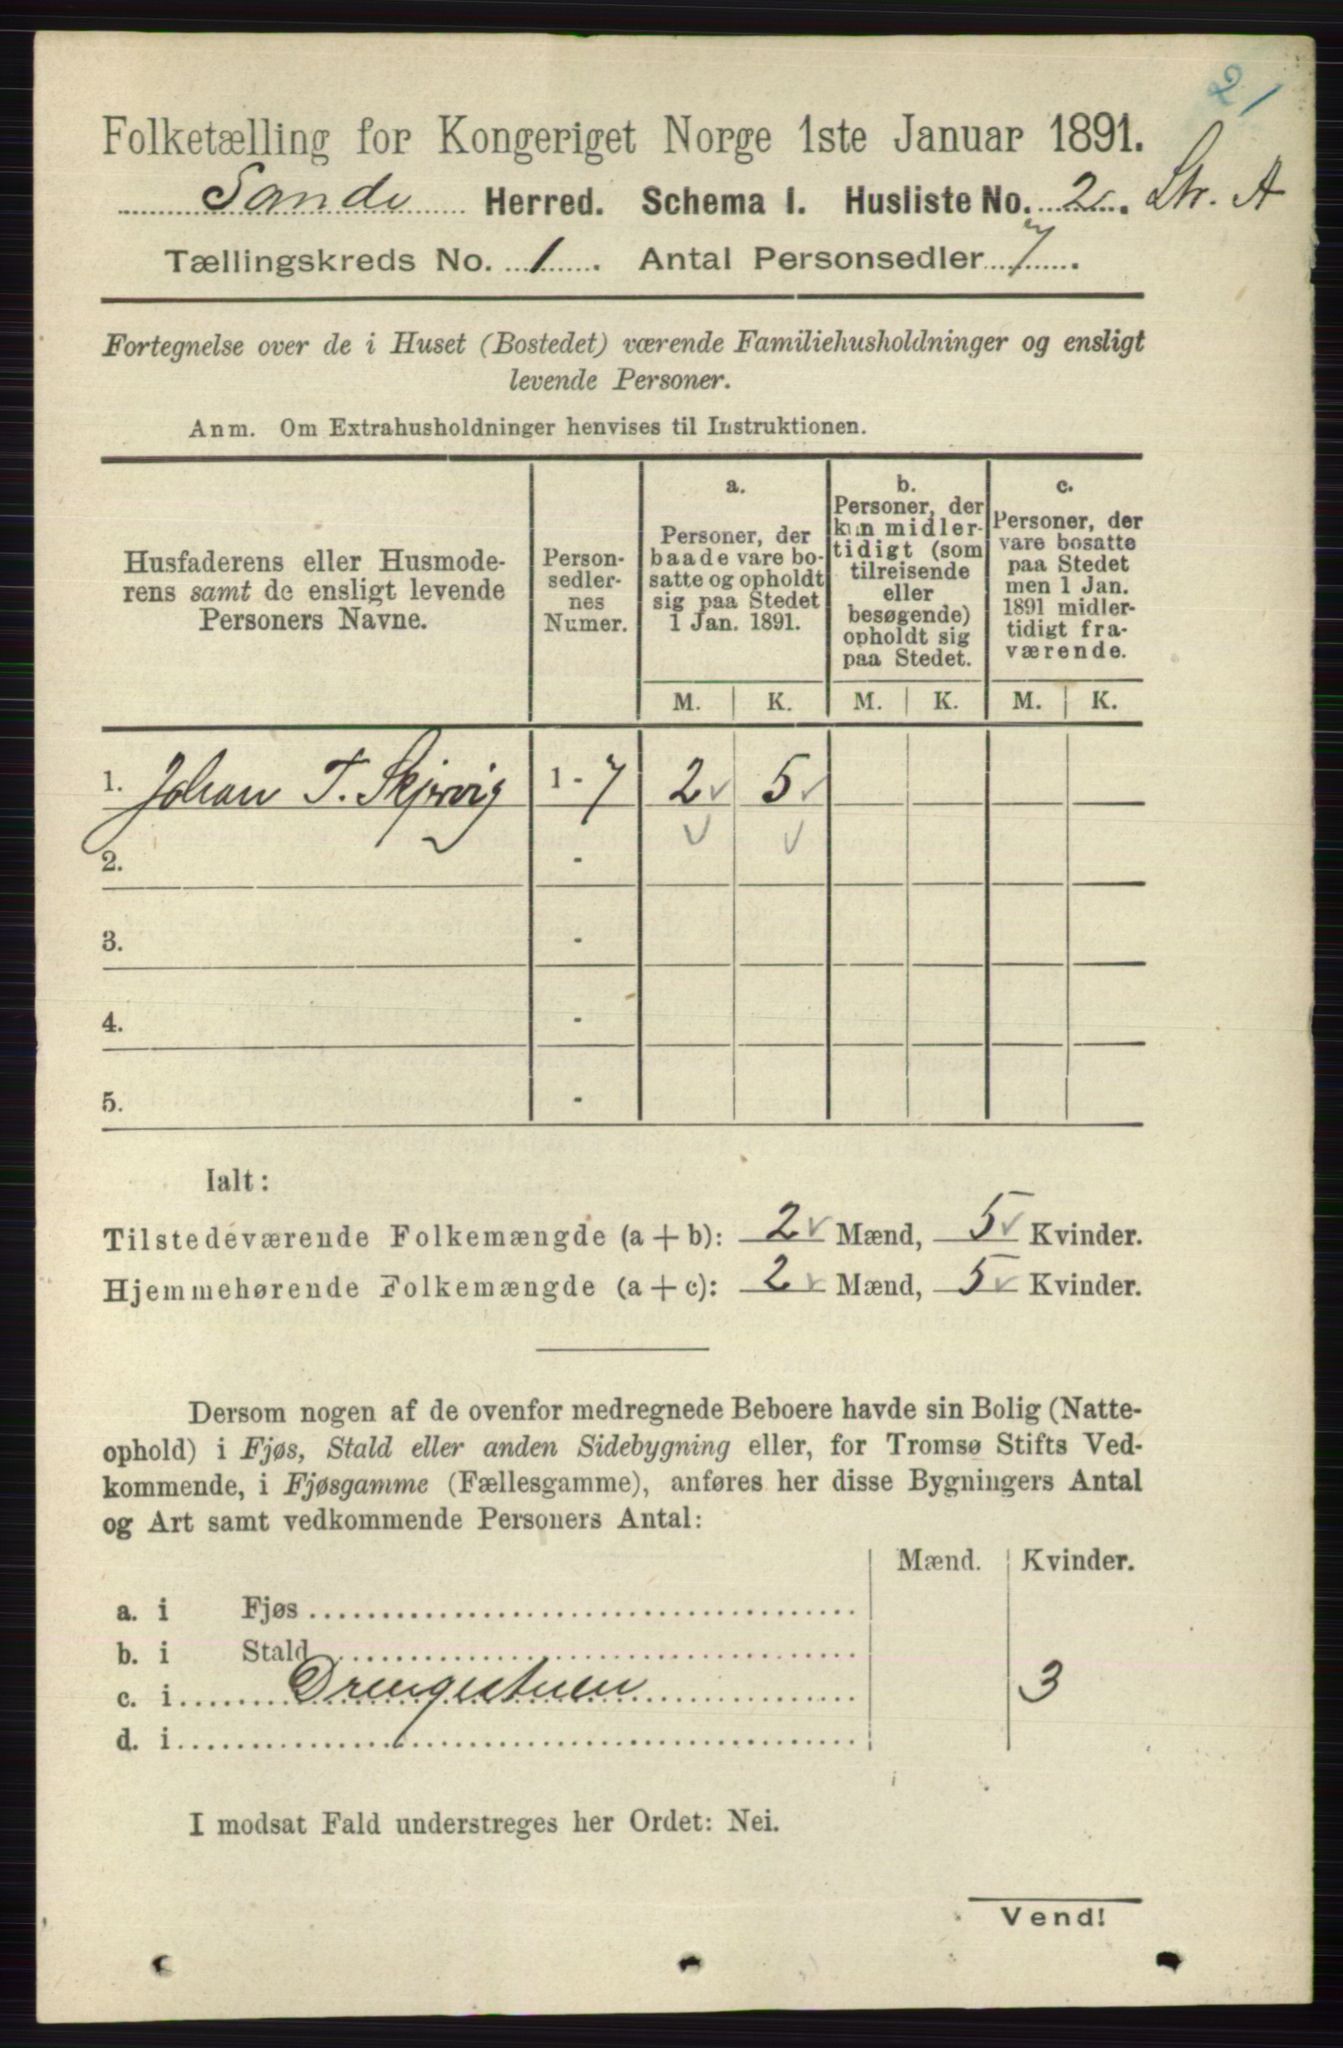 21
Folketælling for Kongeriget Norge 1ste Januar 1891.
Sande Herred. Schema I. Husliste No. 2. Str. A
Tællingskreds No. 1. Antal Personsedler 7.
Fortegnelse over de i Huset (Bostedet) værende Familiehusholdninger og ensligt
levende Personer.
Anm. Om Extrahusholdninger henvises til Instruktionen.
Husfaderens eller Husmode-
rens samt de ensligt levende
Personers Navne.
Person-
sedler-
nes
Numer.
a.
Personer, der
baade vare bo-
satte og opholdt
sig paa Stedet
1 Jan. 1891.
b.
Personer, der
kun midler-
tidigt (som
tilreisende
eller
besøgende)
opholdt sig
paa Stedet.
c.
Personer, der
vare bosatte
paa Stedet
men 1 Jan.
1891 midler-
tidigt fra-
værende.
M. K. M. K. M. K.
1. Johan T. Skjervig 1 - 7 2 ✓ 5 ✓
✓ ✓
2. -
3. -
4. -
5. -
Ialt:
Tilstedeværende Folkemængde (a + b): 2 ✓ Mænd, 5 ✓ Kvinder.
Hjemmehørende Folkemængde (a + c): 2 ✓ Mænd, 5 ✓ Kvinder.
Dersom nogen af de ovenfor medregnede Beboere havde sin Bolig (Natte-
ophold) i Fjøs, Stald eller anden Sidebygning eller, for Tromsø Stifts Ved-
kommende, i Fjøsgamme (Fællesgamme), anføres her disse Bygningers Antal
og Art samt vedkommende Personers Antal:
Mænd. Kvinder.
a. i Fjøs
b. i Stald
c. i Drengestuen 3
d. i
I modsat Fald understreges her Ordet: Nei.
Vend!